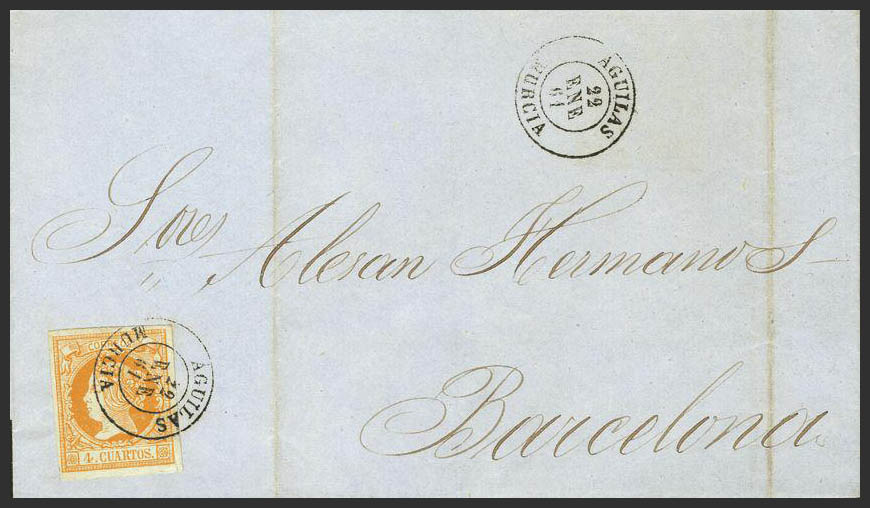 AGUILAS
22
ENE
61
MURCIA
Sores Alesan Hermanos
Barcelona
CORREOS
4 CUARTOS.
AGUILAS
22
ENE
61
MURCIA